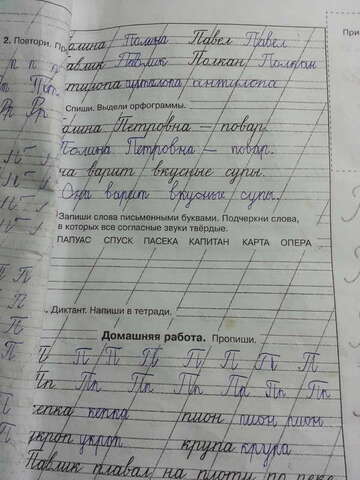 При
2. Повтори.
Полина Полина Павел Павел
Павлик Павлик Полкан Полкан
антилопа антилопа антилопа
Спиши. Выдели орфограммы.
Полина Петровна — повар.
Полина Петровна — повар.
на варит вкусные супы.
Она варит вкусные супы.
Запиши слова письменными буквами. Подчеркни слова,
в которых все согласные звуки твёрдые.
ПАПУАС СПУСК ПАСЕКА КАПИТАН КАРТА ОПЕРА
Диктант. Напиши в тетради.
Домашняя работа. Пропиши.
П П П П П П П П
Пп Пп Пп Пп Пр Пп Пп
репка кепка пион пион пион
укроп укроп крупа крупа
Павлик плавал на плоту по реке